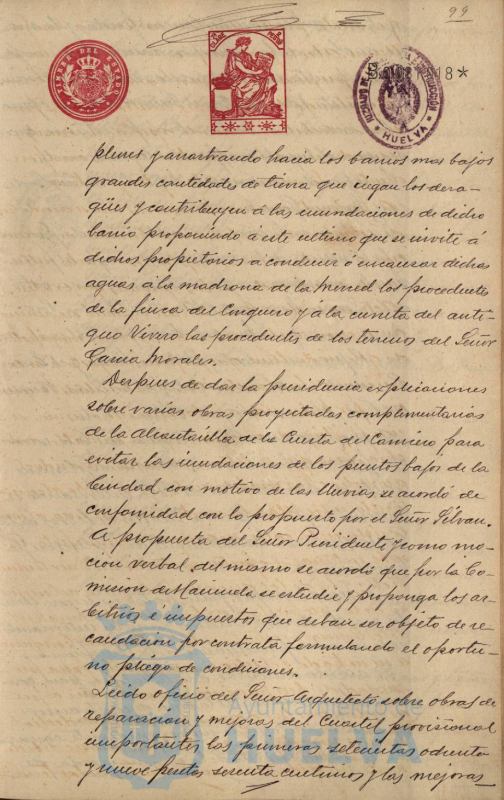 99
TIMBRE DEL ESTADO
1918*
HUELVA
plenes y arrastrando hacia los barrios mas bajos
grandes cantidades de tierra que ciegan los desa-
gües y contribuyen á las inundaciones de dicho
barrio proponiendo á este ultimo que se invite á
dichos propietarios a conducir ó encauzar dichas
aguas á la madrona de la Merced los procedentes
de la finca del Conquero y á la cuneta del anti-
guo Vivero las procedentes de los terrenos del Señor
Garcia Morales.
Despues de dar la presidencia explicaciones
sobre varias obras proyectadas complementarias
de la Alcantarilla de la Cuesta del Carnicero para
evitar las inundaciones de los puntos bajos de la
Ciudad con motivo de las lluvias se acordó de
conformidad con lo propuesto por el Señor Silvan.
A propuesta del Señor Presidente y como mo-
cion verbal del mismo se acordó que por la Co-
mision de Hacienda se estudie y proponga los ar-
bitrios é impuestos que deban ser objeto de re
caudacion por contrata formulando el oportu-
no pliego de condiciones.
Leido oficio del Señor Arquitecto sobre obras de
reparacion y mejoras del Cuartel provisional
importantes las primeras setecientas ochenta
y nueve pesetas sesenta centimos y las mejoras
Ayuntamiento de
HUELVA